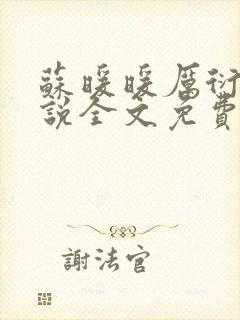 蘇暖暖厲衍
說全文免費
謝法官